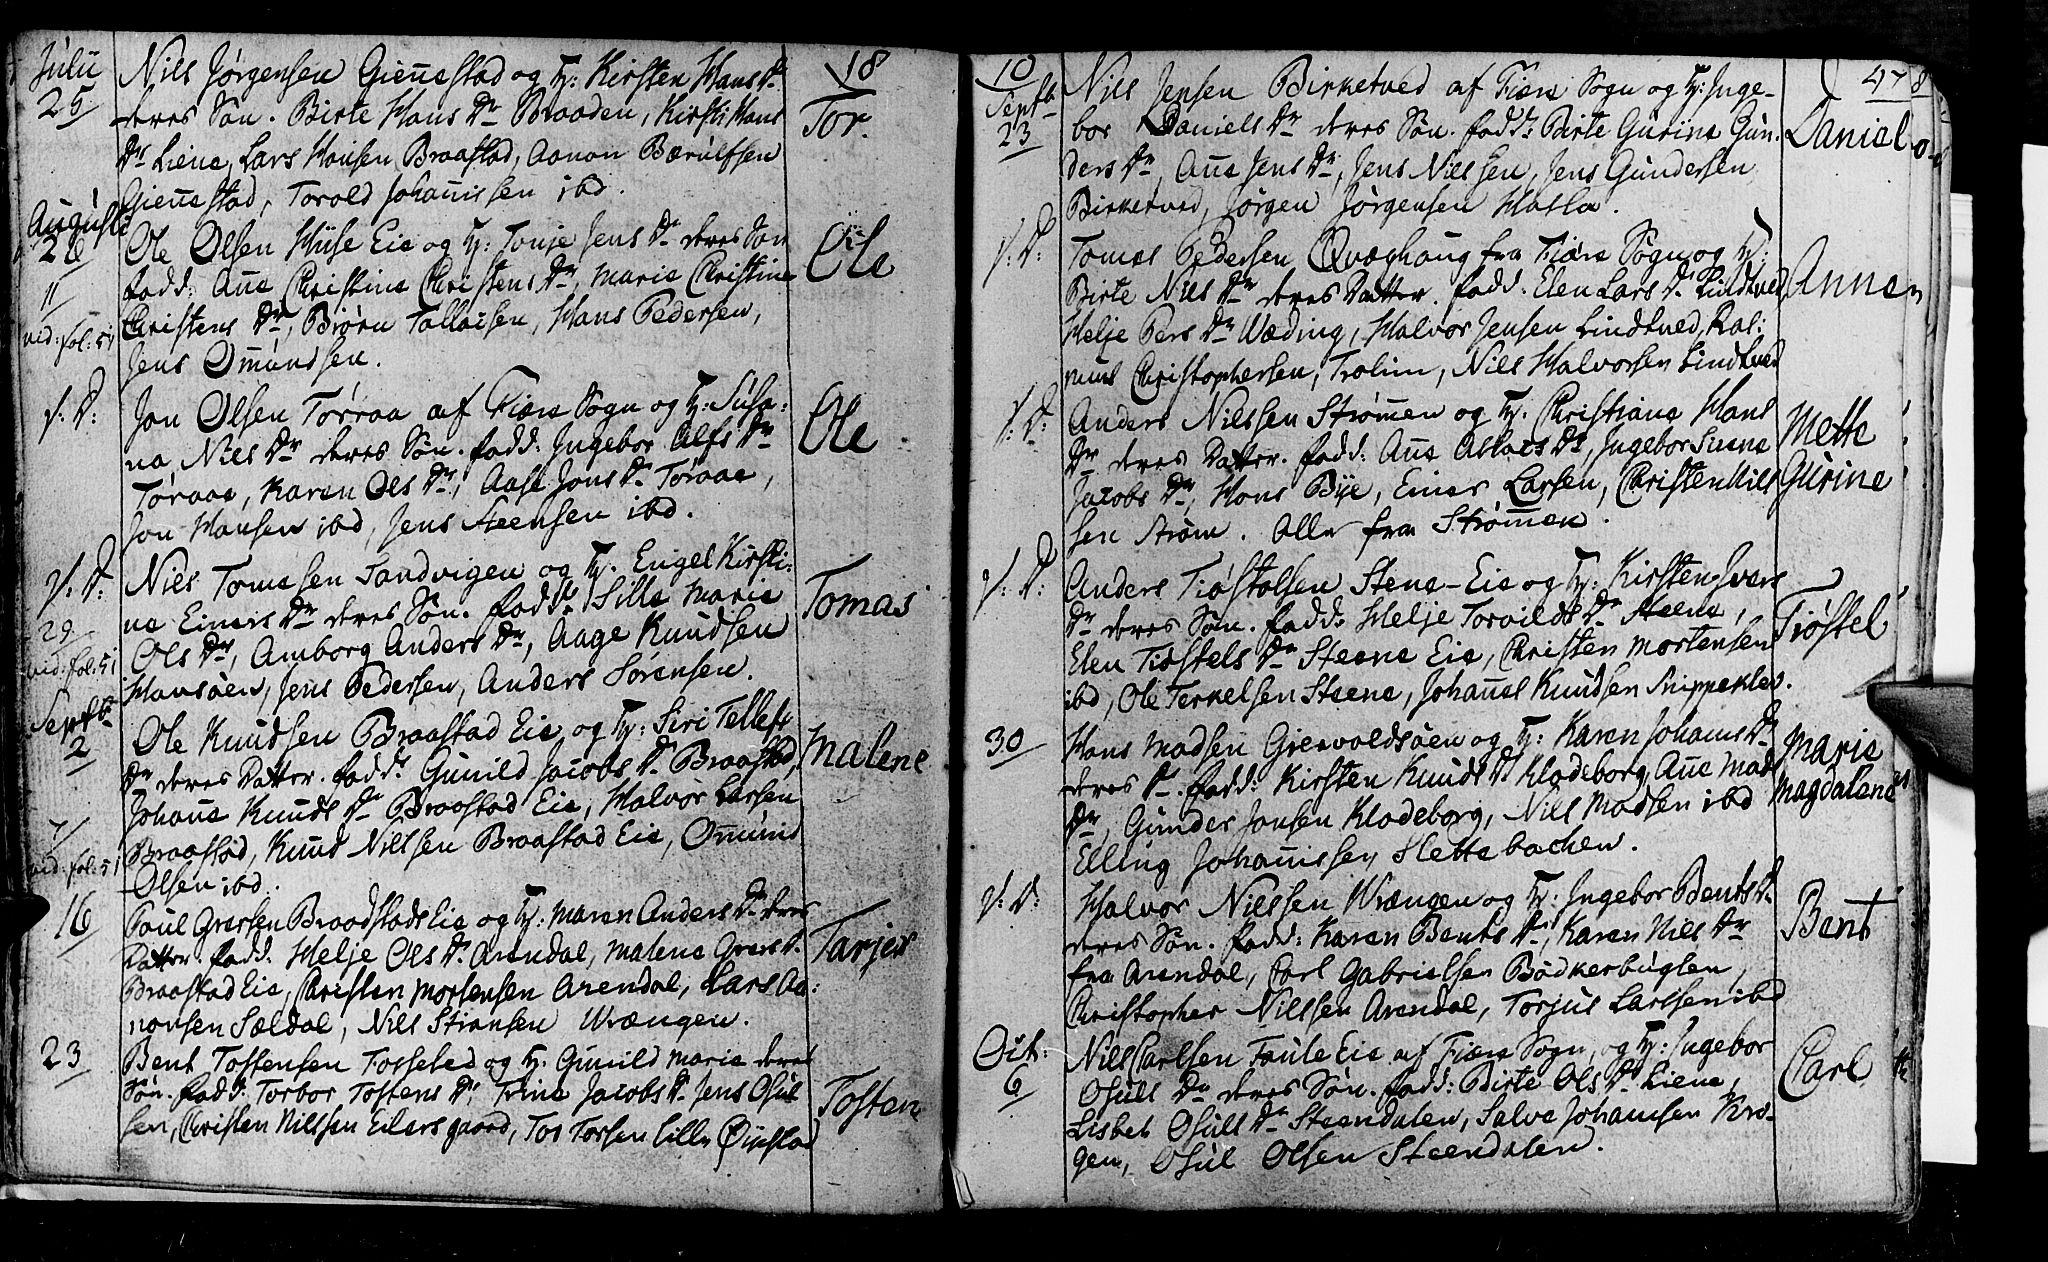 Julii
25
Nils Jørgensen Gieñestad og H: Kirsten Hans Dr
deres Søn. Birte Hans Dr Braaden, Kirsti Hans
Dr Liene, Lars Hansen Braastad, Aanon Bærulfsen
Gieñestad, Torald Johañissen ibd.
18
Tor.
Augusti
26
11
vid: fol: 51
Ole Olsen Huse Eie og H: Tonje Jens Dr deres Søn
fadd: Añe Christine Christens Dr, Marie Christine
Christens Dr, Biørn Tallaisen, Hans Pedersen,
Jens Omundsen.
Ole
V: D:
Jon Olsen Torraa af Fiære Sogn og H: Susa:
na Niels Dr deres Søn. fadd: Ingebor Alfs Dr
Tøraae, Karen Ols Dr, Aase Jons Dr Tøraae,
Jon Hansen ibd, Jens Steensen ibd.
Ole
V: D:
29
vid: fol: 51
Niels Tomessen Sandvigen og H. Engel Kirsti:
na Einers Dr deres Søn. fadd: Sille Marie
Ols Dr, Amborg Anders Dr, Aage Knudsen
Hansøen, Jens Pedersen, Anders Sørensen.
Tomas
Septb
2
7/
vid: fol: 51
Ole Knudsen Braastad Eie og H: Siri Tellefs
Dr deres Datter. fadd: Gunild Jacobs Dr Braastad,
Johañe Knuds Dr Braastad Eie, Halvor Larsen
Braastad, Knud Nilssen Braastad Eie, Omund
Olsen ibd.
Malene
16
Poul Gregsen Braadstads Eie og H: Maren Anders Dr deres
Datter. fadd: Helje Ols Dr Arendal, Malene Grers Dr
Braastad Eie, Christen Mortensen Arendal, Lars Aa:
nonsen Sældal, Nils Stiansen Wrængen.
Tarjer
23
Bent Tostensen Fosseted og H. Gunild Marie deres
Søn. fadd: Torbor Tostens Dr, Trine Jacobs Dr Jens Osul
sen, Christen Nilssen Eilersgaard, Tor Torsen Lille Øiestad
Tosten
10
Septb
23
Nils Jensen Birketved af Fiære Sogn og H: Inge-
bor Daniels Dr deres Søn. fadd: Birte Gurine Gun.
ders Dr, Añe Jens Dr, Jens Nielsen, Jens Gundersen
Birketved, Jørgen Jørgensen Hasla.
478
Daniel
V: D:
Tomes Pedersen Qvæghaug fra Fiære Sogn og H:
Birte Nils Dr deres Datter. fadd: Elen Lars Dr Lindtved
Helje Pers Dr Wæding, Halvor Jensen Lindtved, Ras:
mus Christophersen, Trolim, Nils Halvorsen Lindtved
Anne
V: D:
Anders Nilssen Strømen og H. Christiane Hans
Dr deres Datter. fadd: Añe Aslacs Dr, Ingebor Sirene
Jacobs Dr, Hans Bye, Einer Larsen, Christen Nils
sen Strøm. Alle fra Strømen.
Mette
Gurine
V: D:
Anders Tiøstolsen Stene-Eie og H: Kirsten Ivers
Dr deres Søn. fadd: Helje Torvilds Dr Steene,
Elen Tiøstels Dr Steene Eie, Christen Mortensen
ibd, Ole Terkelsen Steene, Johañes Knudsen Snippeklev.
Tiøstel
30
Hans Madsen Giervoldsøen og H: Karen Johans Dr
deres Dr. fadd: Kirsten Knuds Dr Kladeborg, Añe Mads
Dr, Gunder Jonsen Kladeborg, Nils Madsen ibd
Elling Johañissen Slettebachen.
Marie
Magdalene
V: D:
Halvor Nilssen Wrængen og H: Ingebor Bents Dr
deres Søn. fadd: Karen Bents Dr, Karen Niels Dr
fra Arendal, Carl Gabrielsen Bødkerbugten,
Christopher Nilssen Arendal, Torjus Larssen ibd
Bent
Oct:
6
Nils Carlsen Taule Eie af Fiære Sogn, og H: Ingebor
Osuls Dr deres Søn. fadd: Birte Ols Dr Liene,
Lisbet Osuls Dr Steendalen, Salve Johansen Kro-
gen, Osul Olsen Steendalen.
Carl